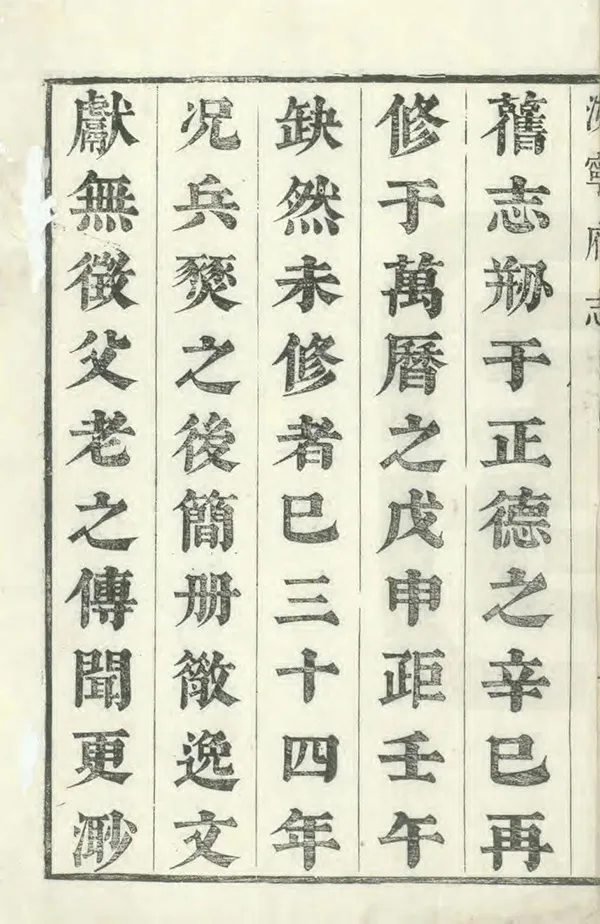 寧府志
舊志剏于正德之辛巳再
修于萬曆之戊申距壬午
缺然未修者已三十四年
况兵燹之後簡册散逸文
獻無徵父老之傳聞更渺